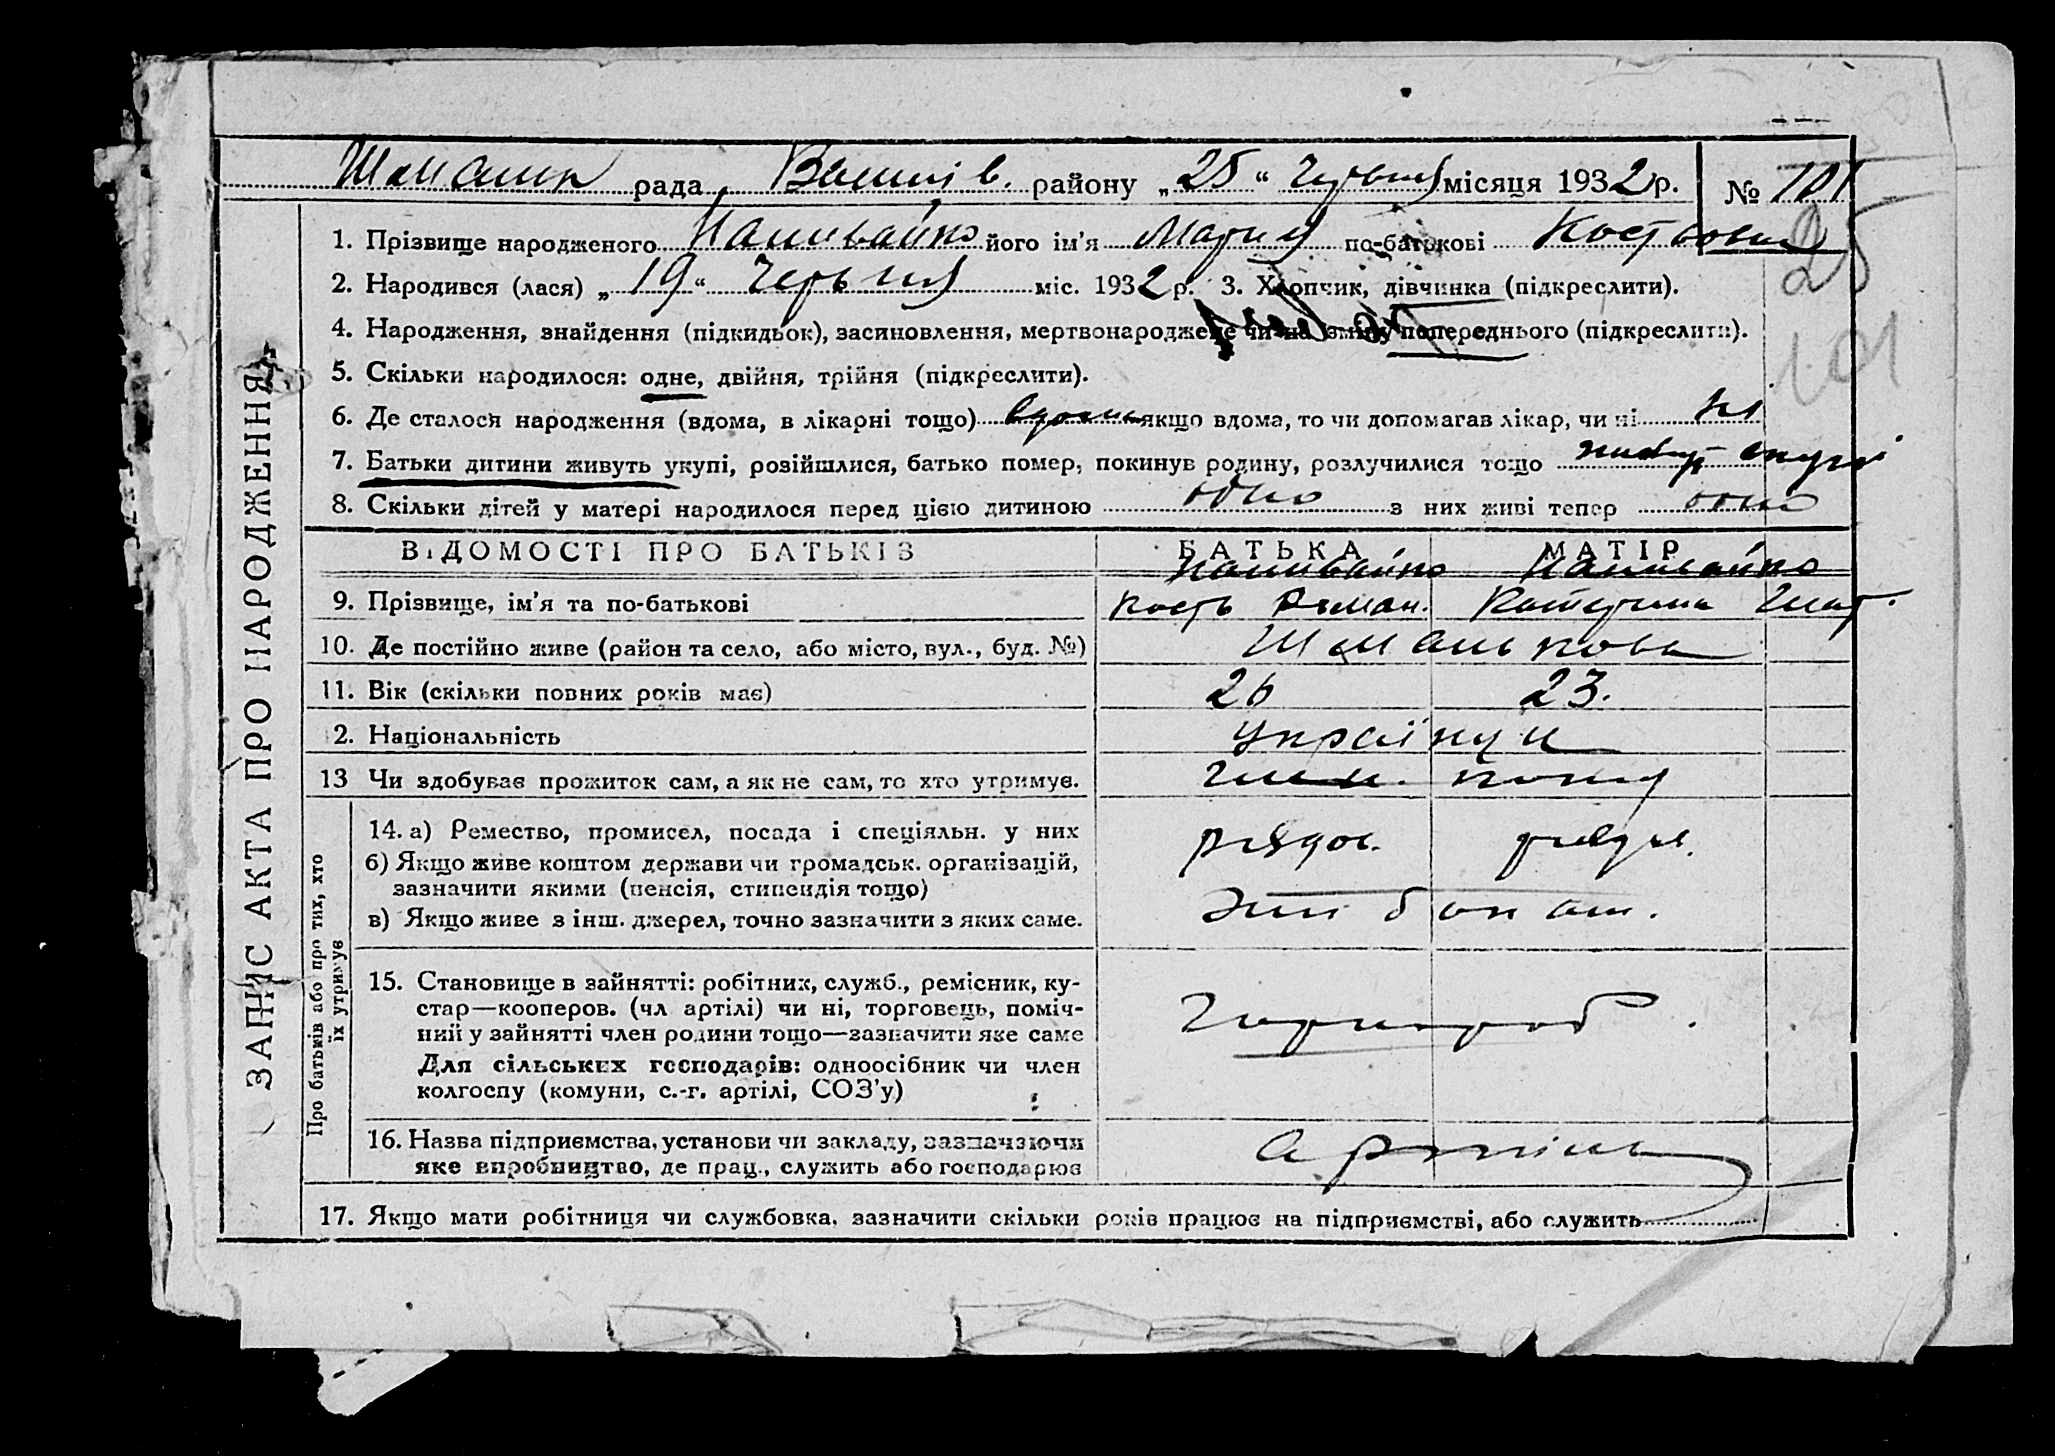 рада Вашків. району „25“ Червня місяця 1932 р. № 101
1. Прізвище народженого Наливайко його ім'я Мария по-батькові Костьовна
25
2. Народився (лася) „19“ Червня міс. 1932 р. 3. Хлопчик, дівчинка (підкреслити).
4. Народження, знайдення (підкидьок), засиновлення, мертвонароджене чи на зміну попереднього (підкреслити).
101
5. Скільки народилося: одне, двійня, трійня (підкреслити).
6. Де сталося народження (вдома, в лікарні тощо) вдома якщо вдома, то чи допомагав лікар, чи ні ні
7. Батьки дитини живуть укупі, розійшлися, батько помер, покинув родину, розлучилися тощо живуть укупі
8. Скільки дітей у матері народилося перед цією дитиною одно з них живі тепер одно
ЗАПИС АКТА ПРО НАРОДЖЕННЯ
ВІДОМОСТІ ПРО БАТЬКІВ БАТЬКА МАТІР
Наливайко Наливайко
9. Прізвище, ім'я та по-батькові Кость Роман. Катерина
10. Де постійно живе (район та село, або місто, вул., буд. №)
11. Вік (скільки повних років має) 26 23.
2. Національність Українци
13 Чи здобуває прожиток сам, а як не сам, то хто утримує.
Про батьків або про тих, хто їх утримує
14. а) Ремество, промисел, посада і спеціяльн. у них рядов. рядов.
б) Якщо живе коштом держави чи громадськ. організацій,
зазначити якими (пенсія, стипендія тощо)
в) Якщо живе з інш. джерел, точно зазначити з яких саме.
15. Становище в зайнятті: робітник, служб., ремісник, ку-
стар—кооперов. (чл артілі) чи ні, торговець, поміч-
ний у зайнятті член родини тощо—зазначити яке саме
Для сільських господарів: одноосібник чи член
колгоспу (комуни, с.-г. артілі, СОЗ'у)
16. Назва підприємства, установи чи закладу, зазначаючи
яке виробництво, де прац., служить або господарює
17. Якщо мати робітниця чи службовка, зазначити скільки років працює на підприємстві, або служить